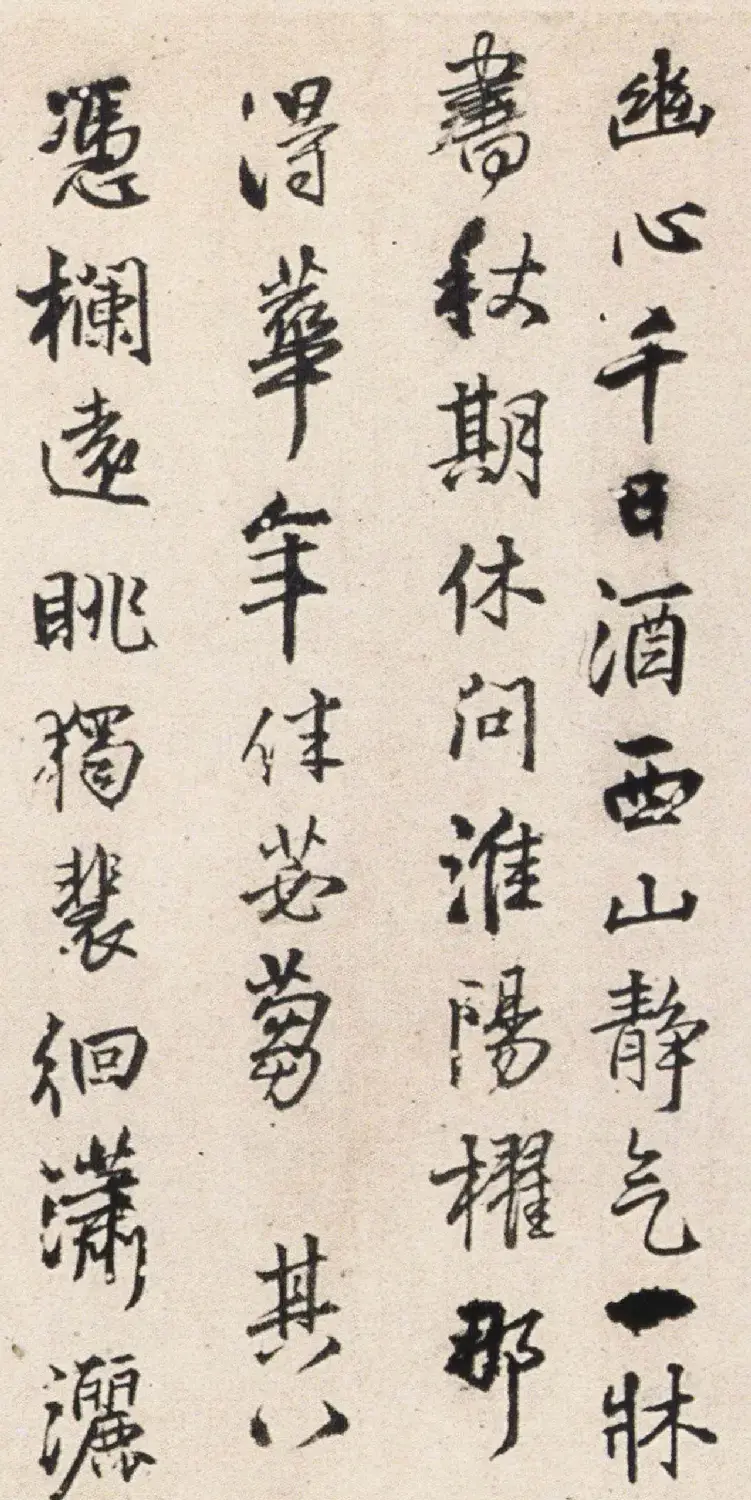 幽心千日酒西山静气一牀
書秋期休问淮陽櫂那
得華年伴苾蒭 其八
憑欄遠眺獨裴徊瀟灑